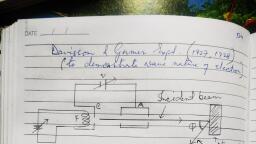 DATE
Davisson & Germer Expt (1927, 1928)
(to demonstrate wave nature of electron)
V
Incident beam
A
F
φ